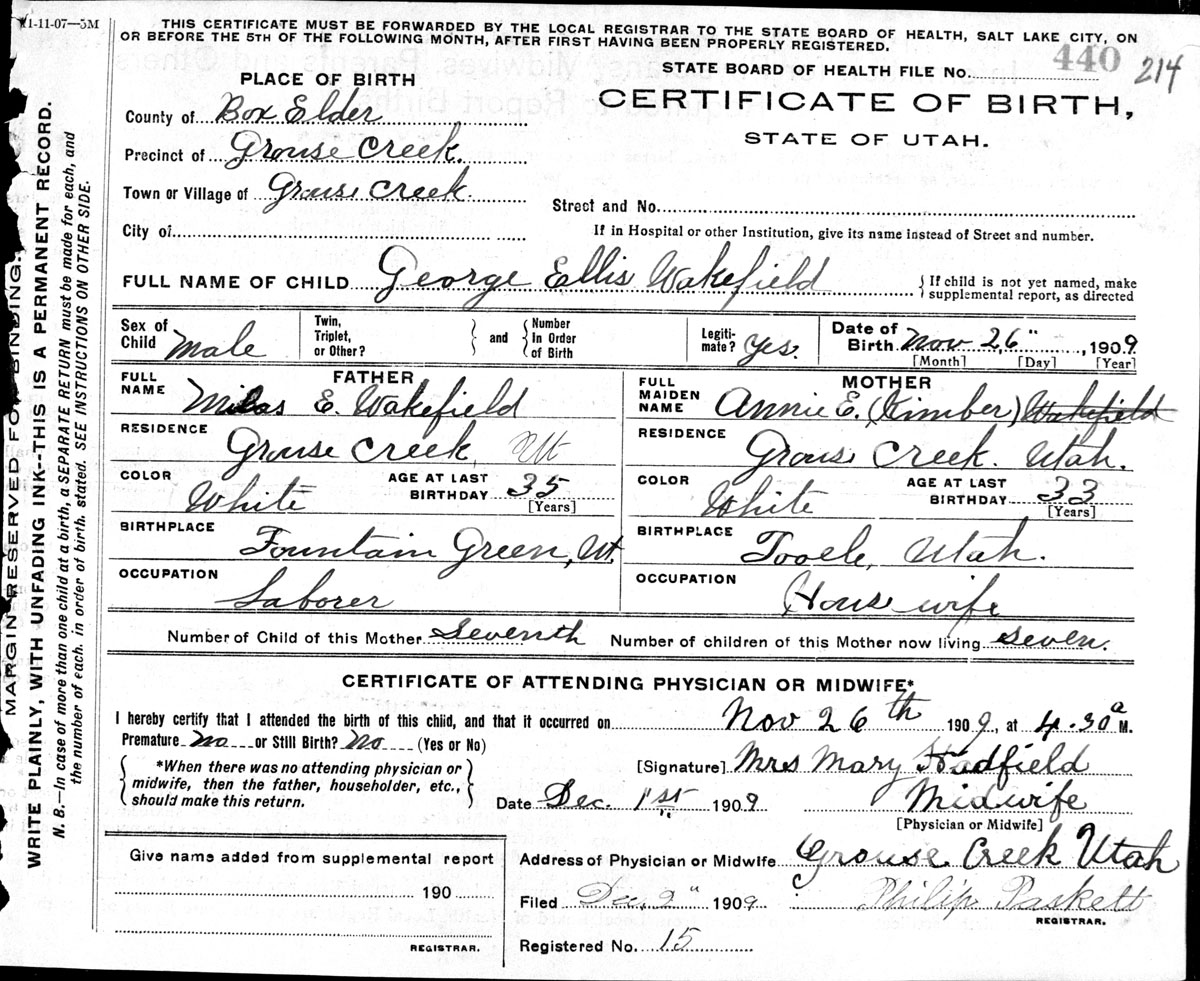 11-11-07—5M
THIS CERTIFICATE MUST BE FORWARDED BY THE LOCAL REGISTRAR TO THE STATE BOARD OF HEALTH, SALT LAKE CITY, ON
OR BEFORE THE 5TH OF THE FOLLOWING MONTH, AFTER FIRST HAVING BEEN PROPERLY REGISTERED.
STATE BOARD OF HEALTH FILE No. 440 214
PLACE OF BIRTH
CERTIFICATE OF BIRTH,
STATE OF UTAH.
County of Box Elder
Precinct of Grouse Creek.
Town or Village of Grouse Creek.
Street and No.
City of
If in Hospital or other Institution, give its name instead of Street and number.
FULL NAME OF CHILD George Ellis Wakefield
{ If child is not yet named, make
supplemental report, as directed
Sex of Child Male
Twin, Triplet, or Other? } and { Number In Order of Birth
Legiti-mate? Yes.
Date of Birth Nov 26", 1909
[Month] [Day] [Year]
FATHER
FULL NAME Milas E. Wakefield
RESIDENCE
Grouse Creek, Ut
COLOR White AGE AT LAST BIRTHDAY 35
[Years]
BIRTHPLACE
Fountain Green, Ut.
OCCUPATION
Laborer
MOTHER
FULL MAIDEN NAME Annie E. (Kimber) Wakefield
RESIDENCE
Grouse Creek. Utah.
COLOR White AGE AT LAST BIRTHDAY 33
[Years]
BIRTHPLACE
Tooele, Utah.
OCCUPATION
House wife
Number of Child of this Mother Seventh Number of children of this Mother now living seven.
CERTIFICATE OF ATTENDING PHYSICIAN OR MIDWIFE*
I hereby certify that I attended the birth of this child, and that it occurred on Nov 26th 1909, at 4.30 a M.
Premature No or Still Birth? No (Yes or No)
{ *When there was no attending physician or
midwife, then the father, householder, etc.,
should make this return. }
[Signature] Mrs Mary Hadfield
Date Dec. 1st 1909 Midwife
[Physician or Midwife]
Give name added from supplemental report
190
REGISTRAR.
Address of Physician or Midwife Grouse Creek Utah
Filed Dec. 2" 1909 Philip Paskett
REGISTRAR.
Registered No. 15
MARGIN RESERVED FOR BINDING.
WRITE PLAINLY, WITH UNFADING INK--THIS IS A PERMANENT RECORD.
N. B.—In case of more than one child at a birth, a SEPARATE RETURN must be made for each, and
the number of each, in order of birth, stated. SEE INSTRUCTIONS ON OTHER SIDE.